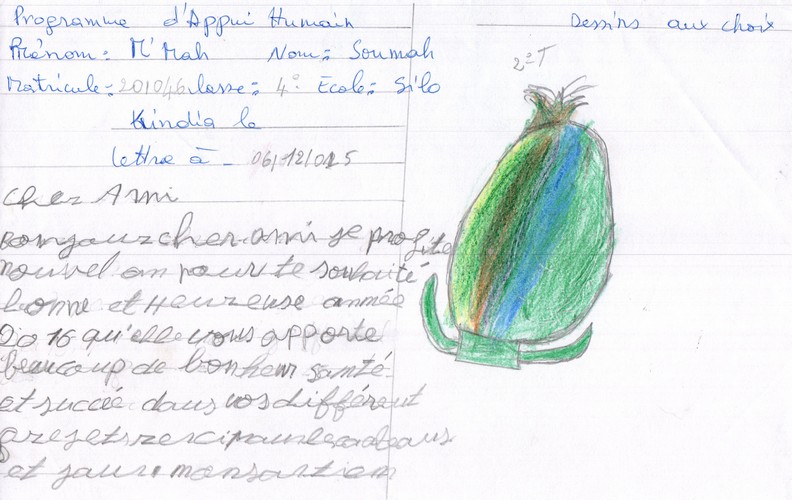 Programme d'Appui Humain
Dessins aux choix
Prénom: M'Mah Nom: Soumah
Matricule: 201046 classe: 4° Ecole: Silo
Kindia le
lettre à - 06/12/015
2°T
cher Ami
bonjour cher ami je profite
nouvel an pour te souhaité
bonne et Heureuse année
2016 qu'elle vous apporte
beaucoup de bonheur santé
et succè dans vos différent
cadeaux
et